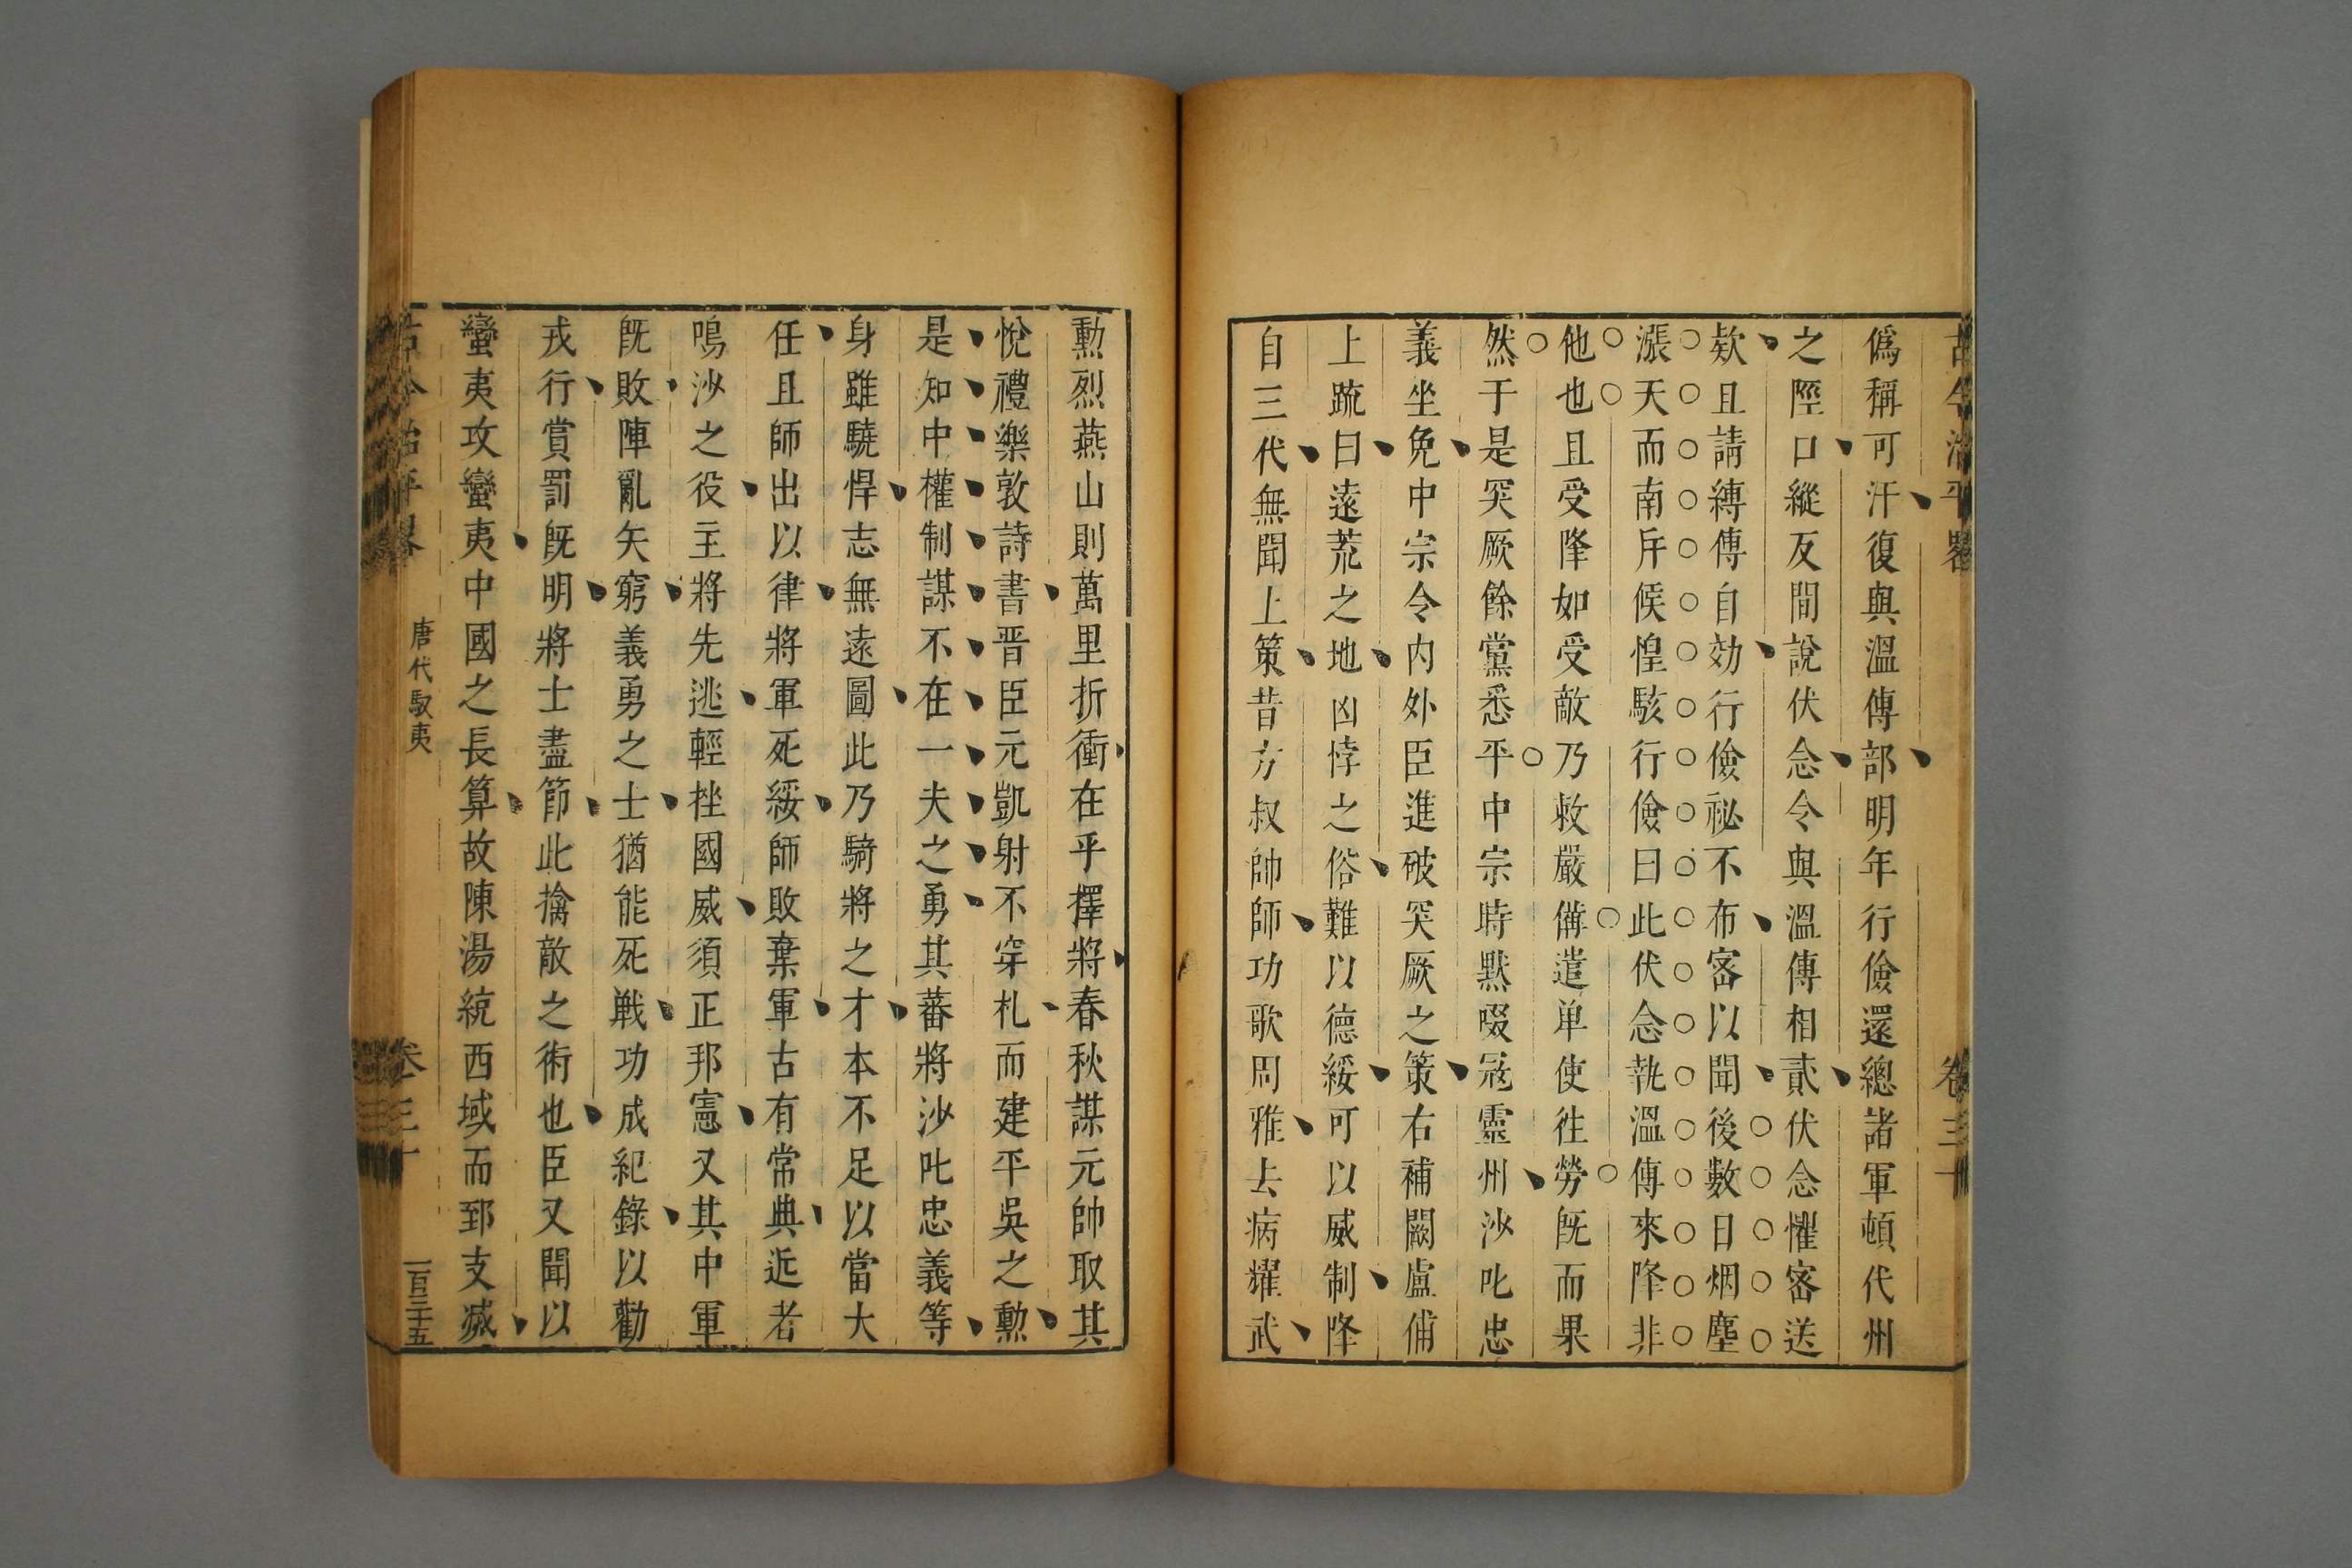 古今治平畧　卷三十
僞稱可汗復與溫傳部明年行儉還總諸軍頓代州
之陘口縱反間說伏念令與溫傳相貳伏念懼密送
欵且請縛傳自効行儉祕不布密以聞後數日烟塵
漲天而南斥候惶駭行儉曰此伏念執溫傳來降非
他也且受降如受敵乃敕嚴備遣单使徃勞旣而果
然于是突厥餘黨悉平中宗時默啜冦靈州沙吒忠
義坐免中宗令内外臣進破突厥之策右補闕盧俌
上疏曰遠荒之地凶悖之俗難以德綏可以威制降
自三代無聞上策昔方叔帥師功歌周雅去病耀武
勳烈燕山則萬里折衝在乎擇將春秋謀元帥取其
悅禮樂敦詩書晋臣元凱射不穿札而建平吳之勳
是知中權制謀不在一夫之勇其蕃將沙吒忠義等
身雖驍悍志無遠圖此乃騎將之才本不足以當大
任且師出以律將軍死綏師敗棄軍古有常典近者
鳴沙之役主將先逃輕挫國威須正邦憲又其中軍
旣敗陣亂矢窮義勇之士猶能死戰功成紀錄以勸
戎行賞罰旣明將士盡節此擒敵之術也臣又聞以
蠻夷攻蠻夷中國之長算故陳湯統西域而郅支滅
古今治平畧　唐代馭夷　卷三十　一百三十五